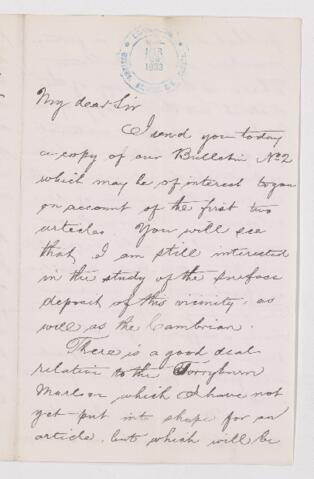 MAR
1933
My dear Sir
I send you today
a copy of our Bulletin No 2
which may be of interest to you
on account of the first two
articles. You will see
that, I am still interested
in the study of the surface
deposit of this vicinity, as
well as the Cambrian.
There is a good deal
relation to the Torryburn
which I have not
yet put into shape for an
article, but which will be